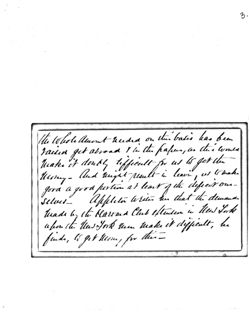 3.
the whole amount needed on this basis has been
raised get abroad & in the papers, as this would
makes it doubly difficult for us to get the
money - And might result in leaving us to make
good a good portion at least of the deficit our-
selves - Appleton writes me that the demands
made by the Harvard Club extension in New York
upon the New York men make it difficult, he
finds, to get money for this -